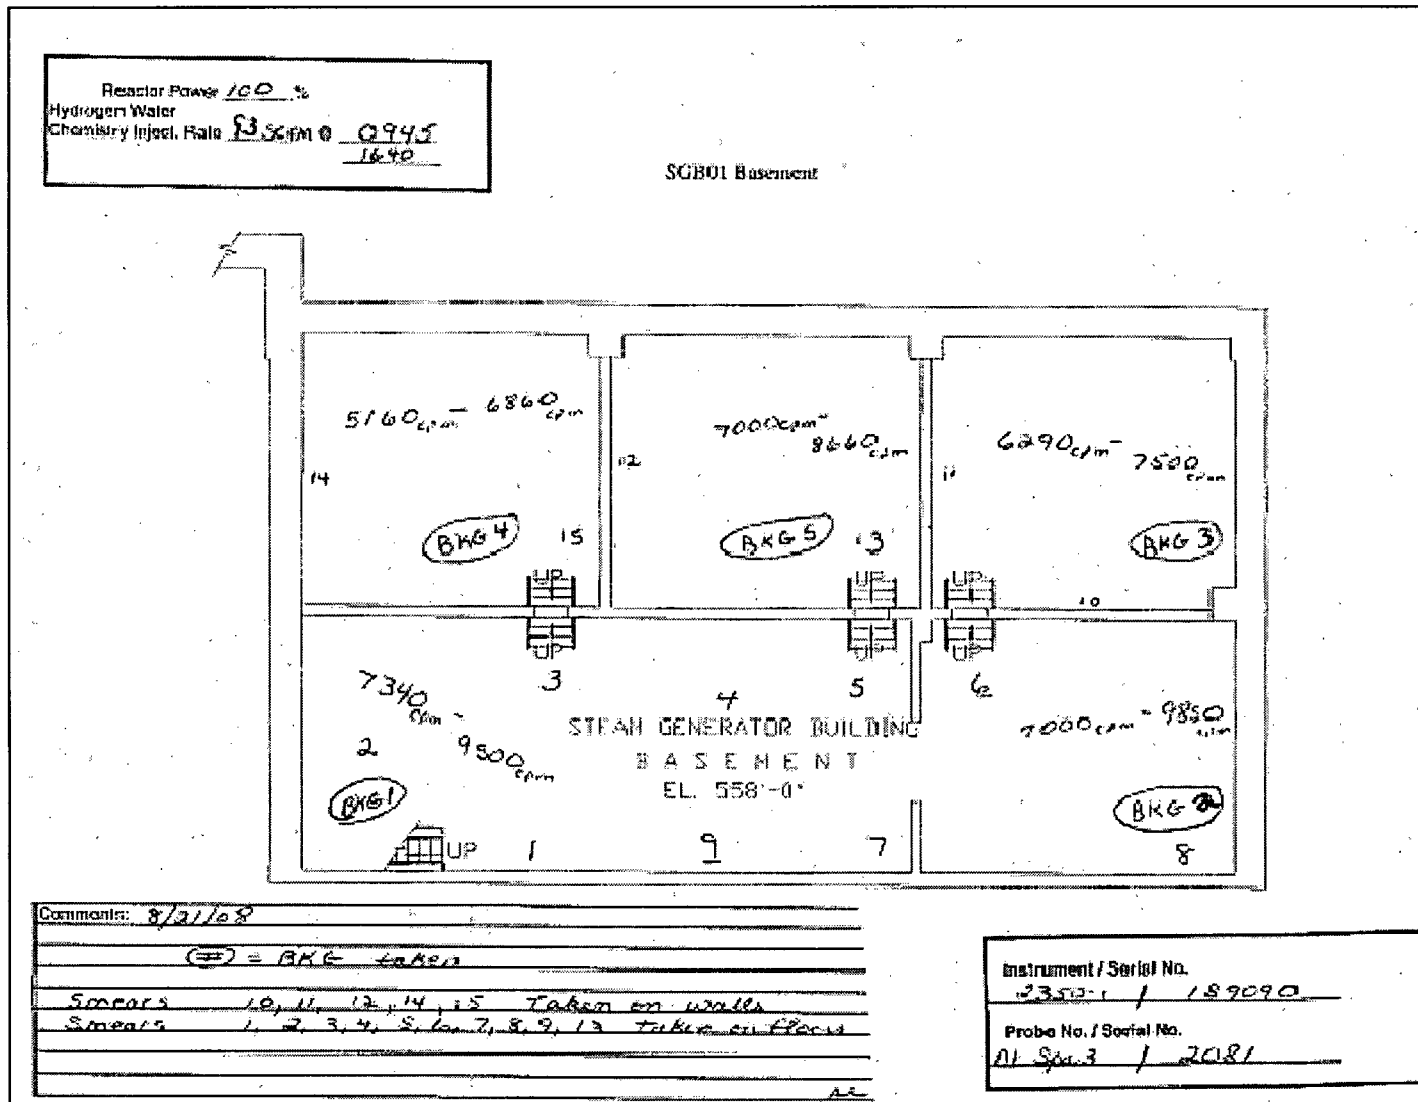 Reactor Power 100 %
Hydrogen Water
Chemistry Inject. Rate 93 SCFM @ 0945
1640
SGB01 Basement
5160 cpm - 6860 cpm
7000 cpm -
8660 cpm
6290 cpm -
7500 cpm
14
12
11
BKG 4
15
BKG 5
13
BKG 3
UP
UP
UP
10
UP
UP
UP
3
4
5
6
7340 cpm -
9500 cpm
7000 cpm - 9850 cpm
STEAM GENERATOR BUILDING
BASEMENT
EL. 558'-0"
2
BKG 1
BKG 2
UP
1
9
7
8
Comments: 8/21/08
= BKG taken
Smears 10, 11, 12, 14, 15 Taken on walls
Smears 1, 2, 3, 4, 5, 6, 7, 8, 9, 13 taken on floors
Instrument / Serial No.
2350-1 / 189090
Probe No. / Serial No.
NI Spa 3 / 2081